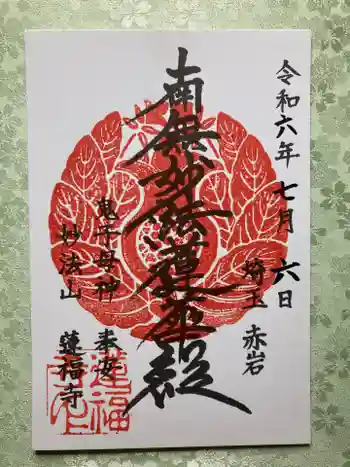 令和六年七月六日
埼玉 赤岩
南無妙法蓮華経
鬼子母神 奉安
妙法山 蓮福寺
蓮福